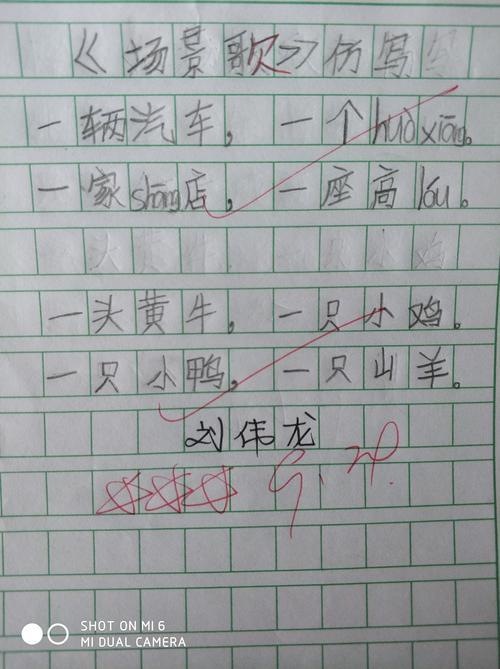 《场景歌》仿写
一辆汽车，一个huò xiāng。
一家shāng店，一座高lóu。
一头黄牛，一只小鸡。
一只小鸭，一只山羊。
刘伟龙
9.20.
SHOT ON MI 6
MI DUAL CAMERA